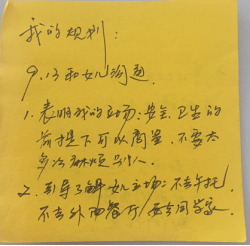 我的规划:
9.13和女儿沟通
1.表明我的立场:安全、卫生的
前提下可以商量,不要太
多次麻烦别人
2.引导了解女儿立场:不去午托
不去外面餐厅 同学家